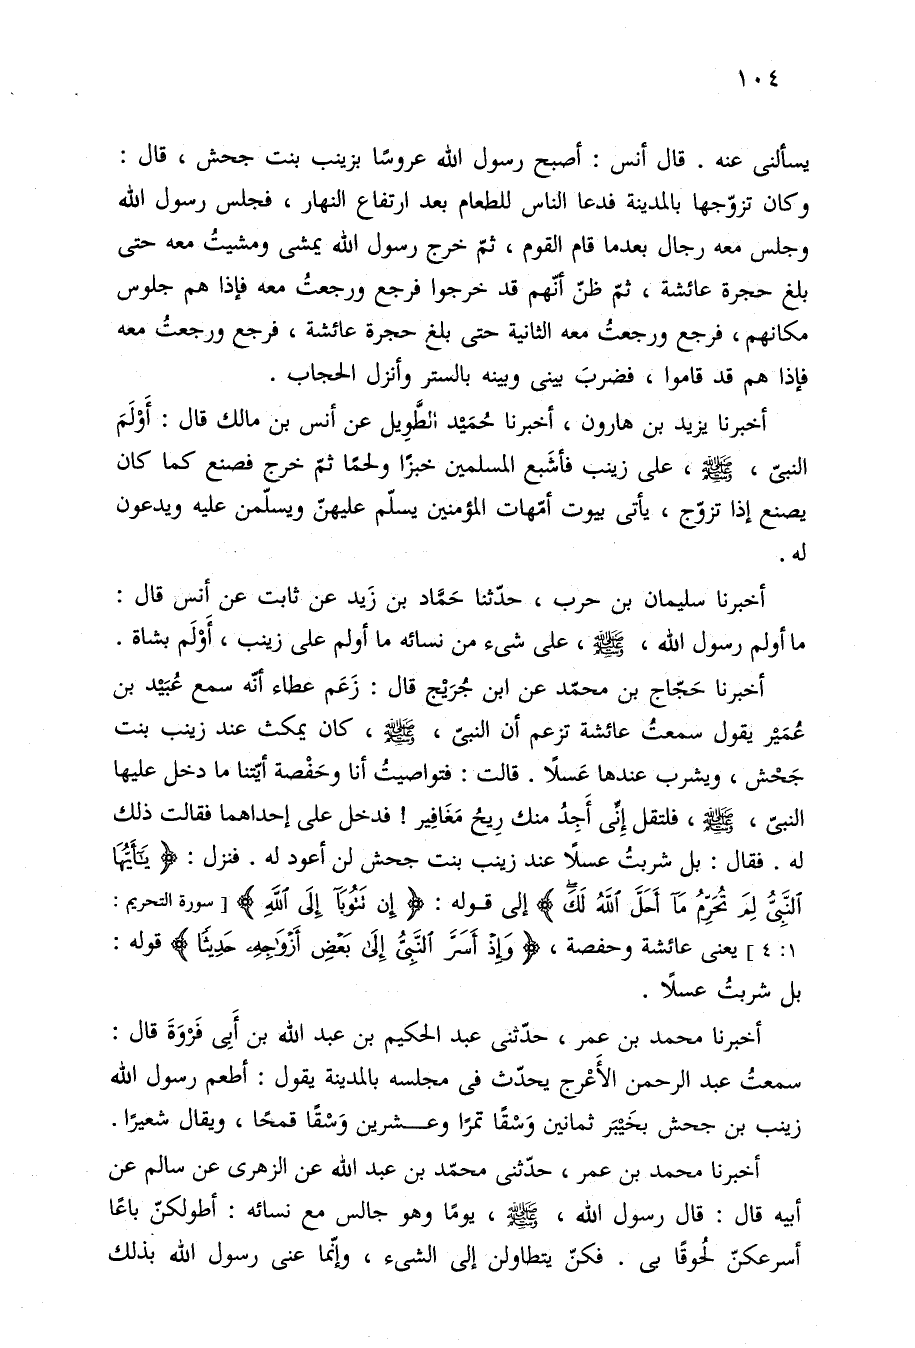 ١٠٤
يسألنى عنه . قال أنس : أصبح رسول الله عروسًا بزينب بنت جحش ، قال :
وكان تزوّجها بالمدينة فدعا الناس للطعام بعد ارتفاع النهار ، فجلس رسول الله
وجلس معه رجال بعدما قام القوم ، ثمّ خرج رسول الله يمشى ومشيتُ معه حتى
بلغ حجرة عائشة ، ثمّ ظنّ أنّهم قد خرجوا فرجع ورجعتُ معه فإذا هم جلوس
مكانهم ، فرجع ورجعتُ معه الثانية حتى بلغ حجرة عائشة ، فرجع ورجعتُ معه
فإذا هم قد قاموا ، فضربَ بينى وبينه بالستر وأنزل الحجاب .
أخبرنا يزيد بن هارون ، أخبرنا حُمَيْد الطَّوِيل عن أنس بن مالك قال : أَوْلَمَ
النبىّ ، ﷺ ، على زينب فأشَبع المسلمين خبزًا ولحمًا ثمّ خرج فصنع كما كان
يصنع إذا تزوّج ، يأتى بيوت أمّهات المؤمنين يسلّم عليهنّ ويسلّمن عليه ويدعون
له .
أخبرنا سليمان بن حرب ، حدّثنا حَمَّاد بن زَيد عن ثابت عن أنس قال :
ما أولم رسول الله ، ﷺ ، على شىء من نسائه ما أولم على زينب ، أَوْلَم بشاة .
أخبرنا حَجّاج بن محمّد عن ابن جُرَيْج قال : زَعَم عطاء أنّه سمع عُبَيْد بن
عُمَيْر يقول سمعتُ عائشة تزعم أن النبىّ ، ﷺ ، كان يمكث عند زينب بنت
جَحْش ، ويشرب عندها عَسلًا . قالت : فتواصيتُ أنا وحَفْصة أيّتنا ما دخل عليها
النبىّ ، ﷺ ، فلتقل إنِّى أَجِدُ منك رِيحُ مَغَافِير ! فدخل على إحداهما فقالت ذلك
له . فقال : بل شربتُ عسلًا عند زينب بنت جحش لن أعود له . فنزل : ﴿ يَٰٓأَيُّهَا
ٱلنَّبِىُّ لِمَ تُحَرِّمُ مَآ أَحَلَّ ٱللَّهُ لَكَۖ ﴾ إلى قـوله : ﴿ إِن تَتُوبَآ إِلَى ٱللَّهِ ﴾ [ سورة التحريم :
١: ٤ ] يعنى عائشة وحفصة ، ﴿ وَإِذْ أَسَرَّ ٱلنَّبِىُّ إِلَىٰ بَعْضِ أَزْوَٰجِهِۦ حَدِيثًا ﴾ قوله :
بل شربتُ عسلًا .
أخبرنا محمد بن عمر ، حدّثنى عبد الحكيم بن عبد الله بن أَبِى فَرْوَةَ قال :
سمعتُ عبد الرحمن الأَعْرج يحدّث فى مجلسه بالمدينة يقول : أطعم رسول الله
زينب بن جحش بخَيْبَر ثمانين وَسْقًا تمرًا وعـــشرين وَسْقًا قمحًا ، ويقال شعيرًا .
أخبرنا محمد بن عمر ، حدّثنى محمّد بن عبد الله عن الزهرى عن سالم عن
أبيه قال : قال رسول الله ، ﷺ ، يومًا وهو جالس مع نسائه : أطولكنّ باعًا
أسرعكنّ لُحوقًا بى . فكنّ يتطاولن إلى الشىء ، وإنّما عنى رسول الله بذلك